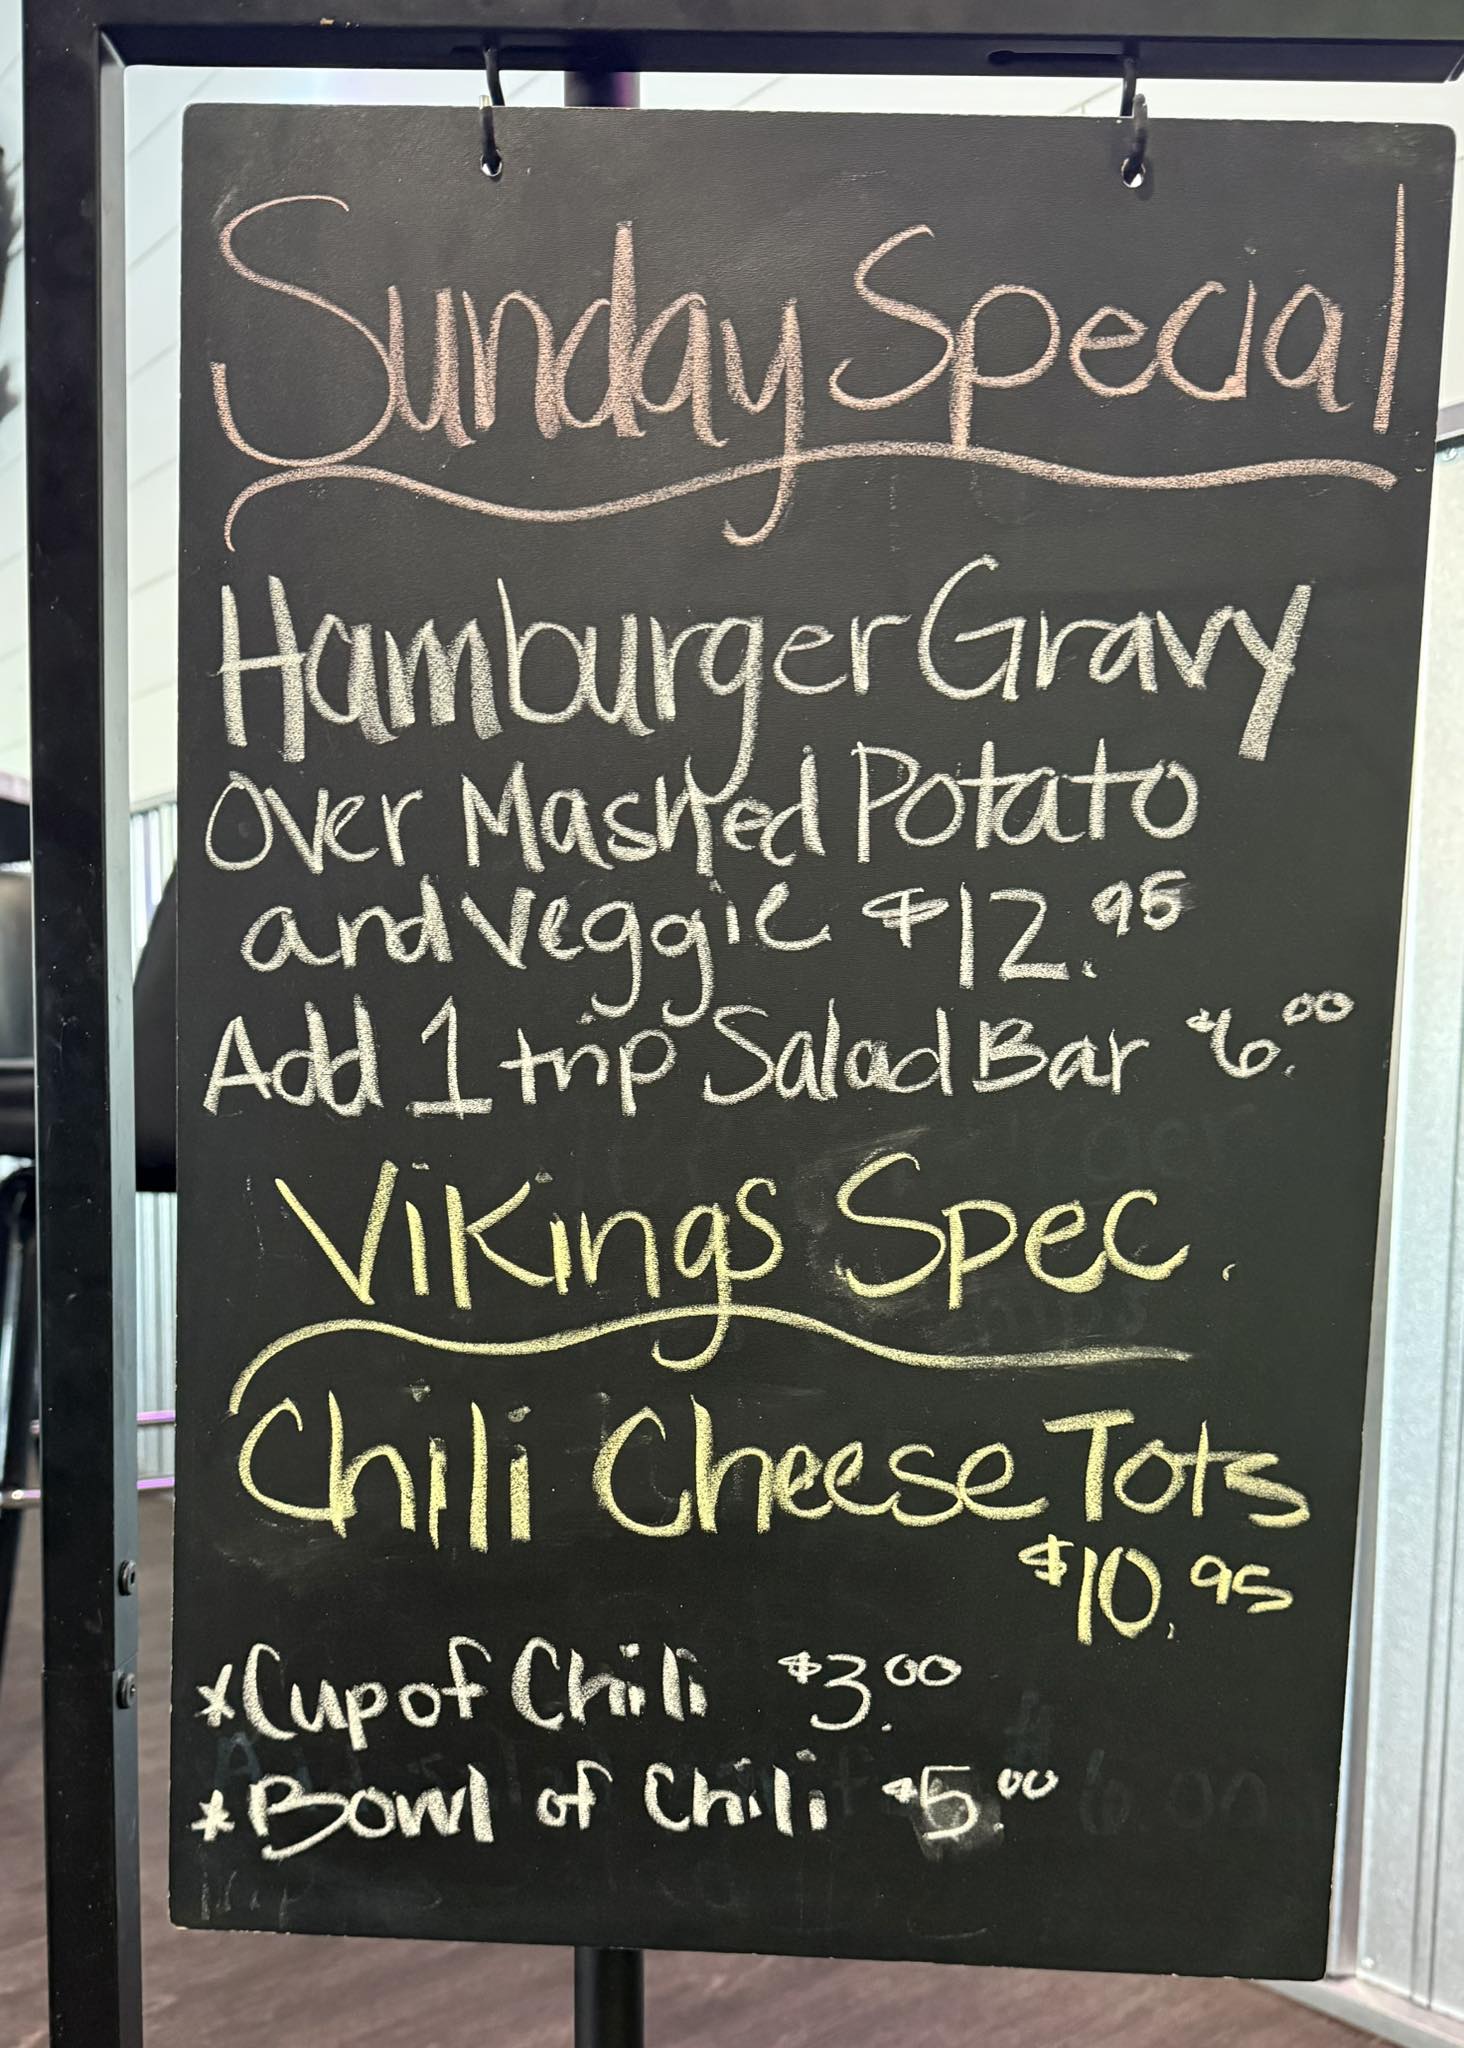 Sunday Special
Hamburger Gravy
Over Mashed Potato
and Veggie $12.95
Add 1 trip Salad Bar $6.00
Vikings Spec.
Chili Cheese Tots
$10.95
*Cup of Chili $3.00
*Bowl of Chili $5.00